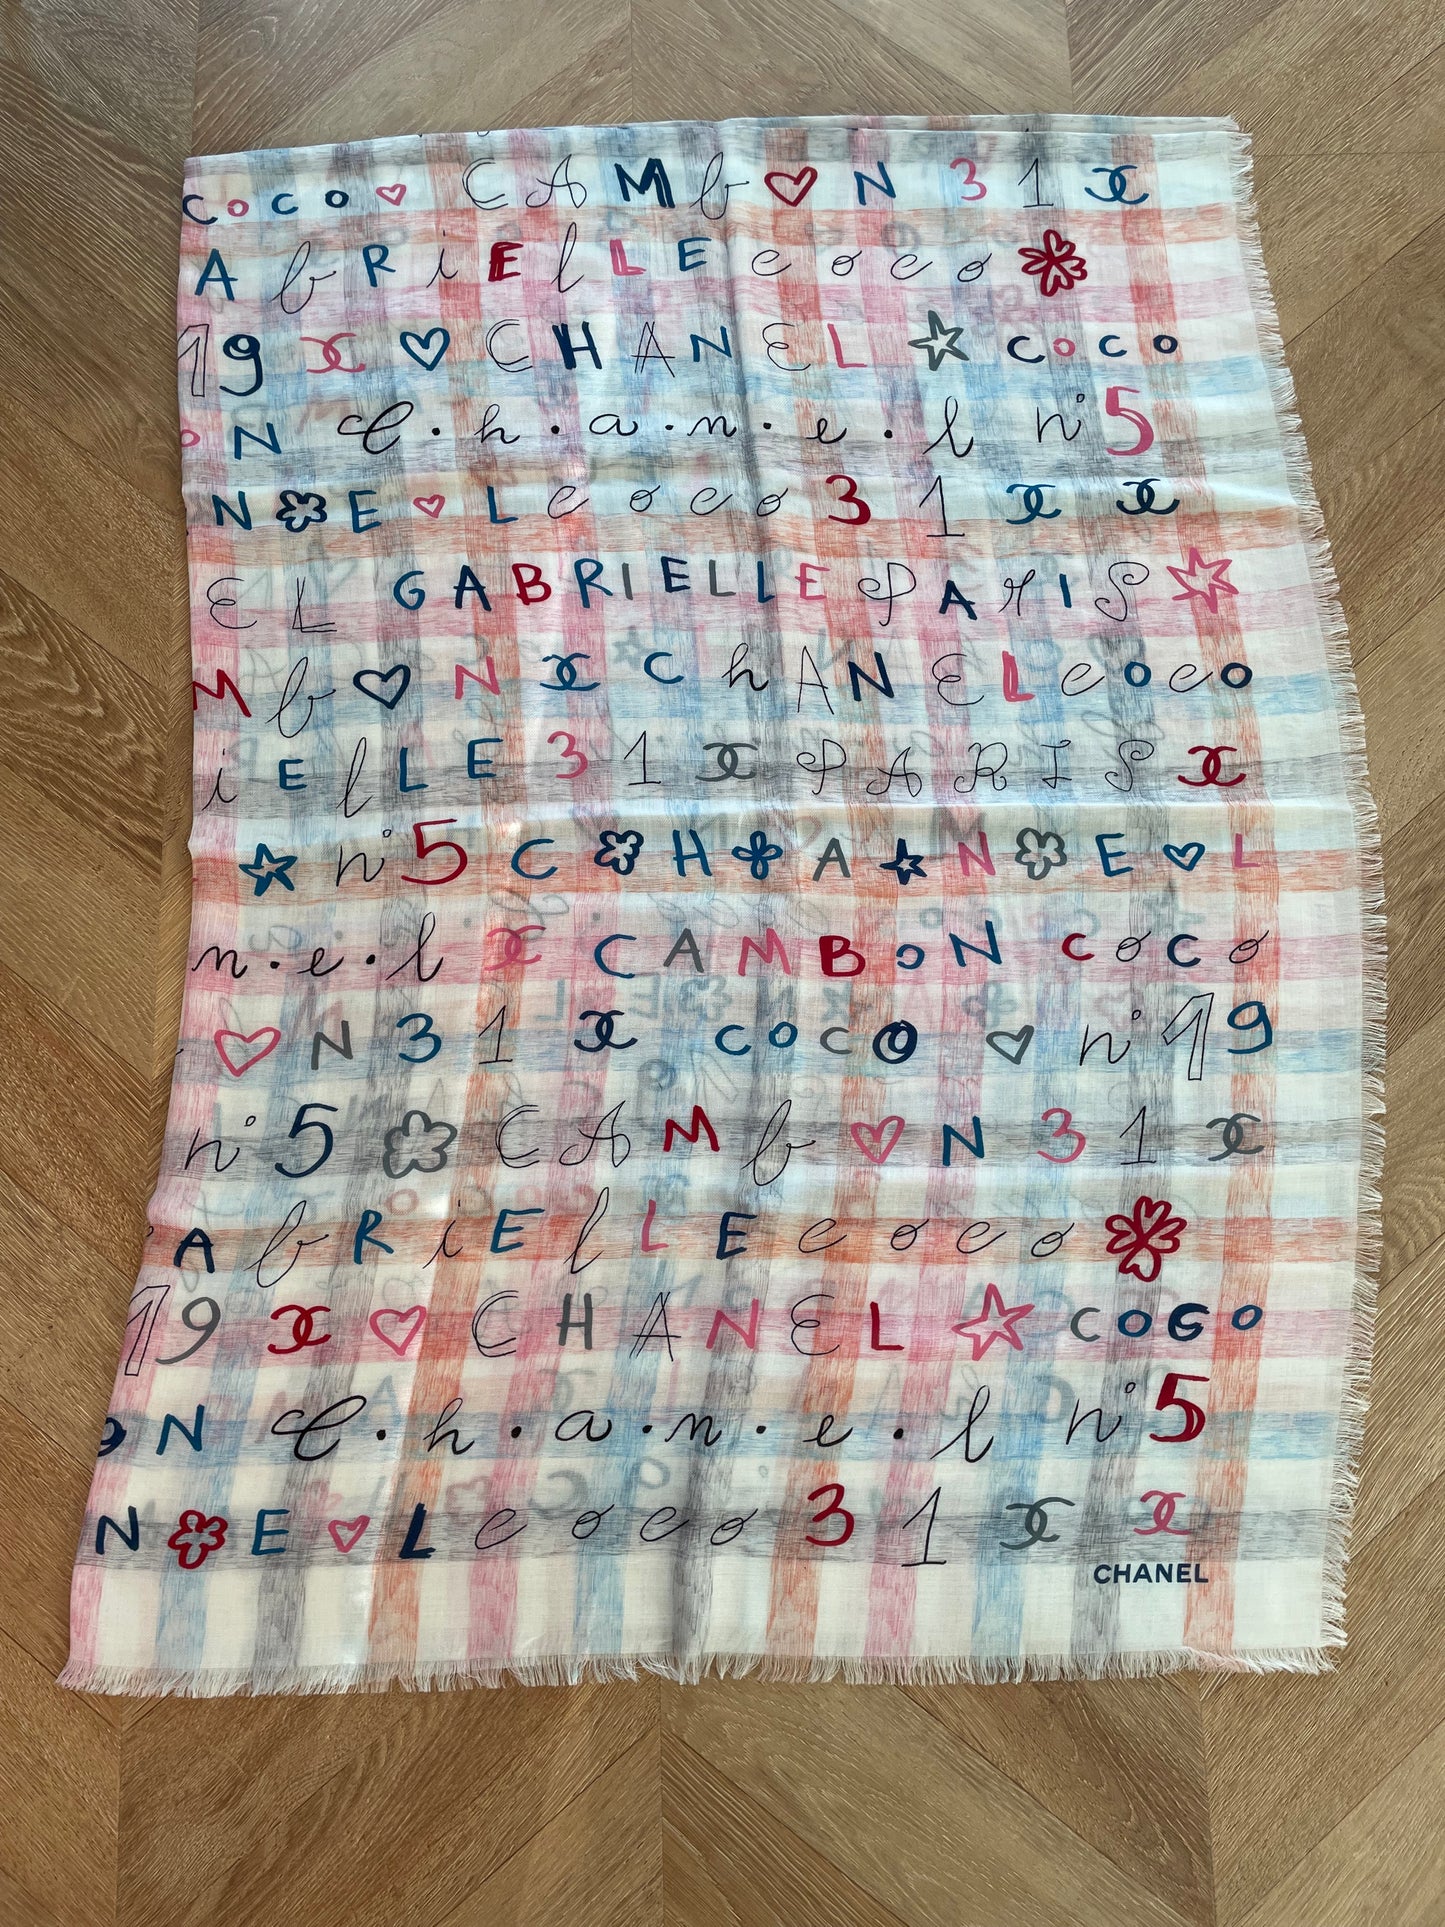 COCO CAMbON 31
AbRiElLE coco
19 CHANEL COCO
ON C.h.a.n.e.l n°5
NEL coco 31
EL GABRIELLE PARIS
MbON ChANEL coco
iElLE 31 PARIS
n°5 CHANEL
n.e.l CAMBON COCO
ON 31 COCO n°19
n°5 CAMbON 31
AbRiElLE coco
19 CHANEL COCO
ON C.h.a.n.e.l n°5
NEL coco 31
CHANEL